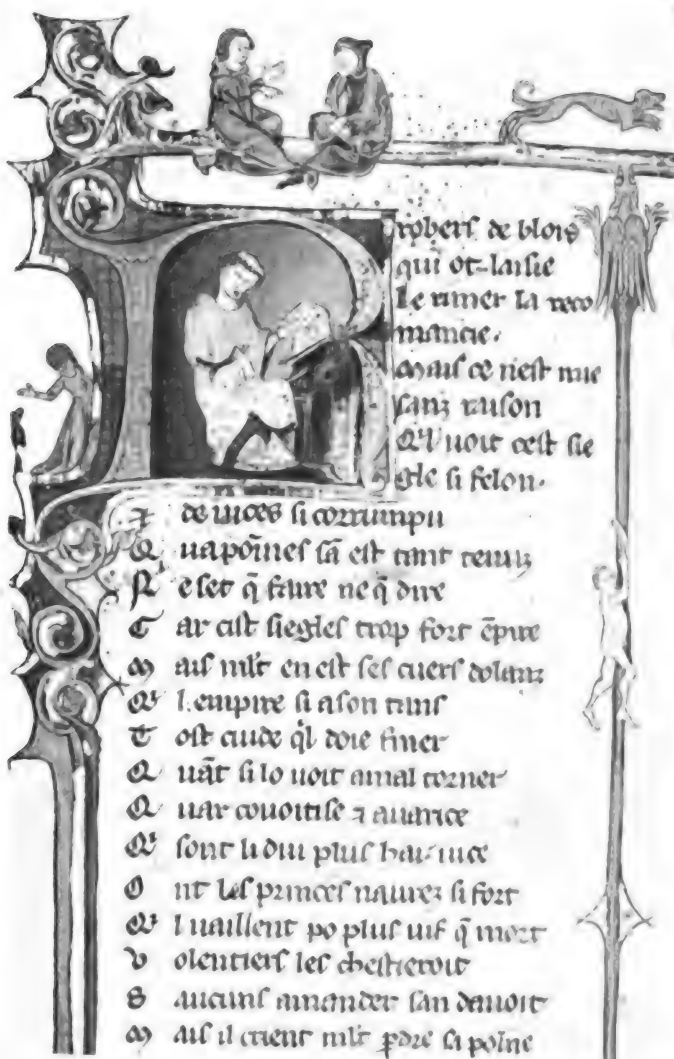 robers de blois
qui ot laisie
Le rimer la reco
mancie.
Mais ce nest mie
sanz raison
Ql uoit cest sie
gle si felon.
de uices si corrumpu
Q uapoīnes sā est tant tenuz
N e set q̄ faire ne q̄ dire
C ar cist siegles trop fort ēpire
M ais mlt en est ses cuers dolanz
Q l empire si a son tans
T ost cuide ql doie finer
Q uāt si lo uoit a mal torner
Q uar couoitise ⁊ auarice
Q sont li dui plus hai uice
O nt les princes naurez si fort
Q l uaillent po plus uif q̄ mort
V olentiers les chestieroit
S aucuns amender san deuoit
M ais il crient mlt ꝑdre sa poine